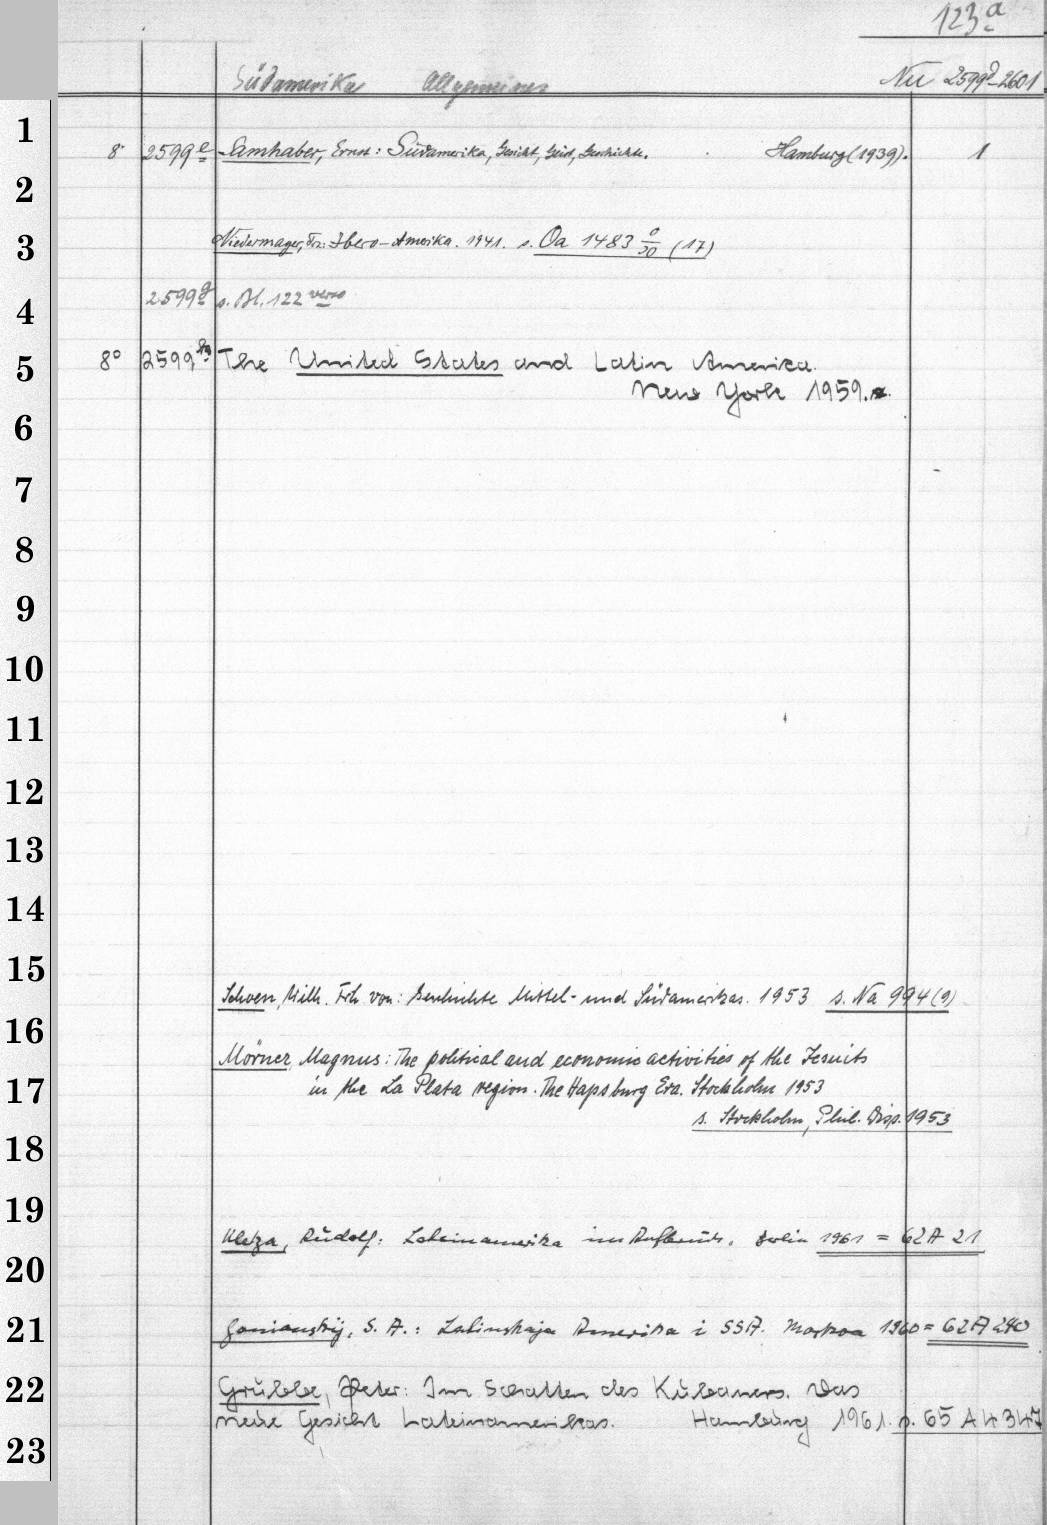 123a
Südamerika Allgemeines Nu 2599d-2601
1
8° 2599e Samhaber, Ernst: Südamerika, Gesicht, Geist, Geschichte. Hamburg (1939). 1
2
3 Niedermayer, Frz.: Ibero-Amerika. 1941. s. Oa 1483 0/30 (17)
4 2599g s. Bl. 122 verso
5 8° 2599 The United States and Latin America.
New York 1959.
6
7
8
9
10
11
12
13
14
15
Schoen, Wilh. Frh. von: Geschichte Mittel- und Südamerikas. 1953 s. Na 994(9)
16
Mörner, Magnus: The political and economic activities of the Jesuits
17 in the La Plata region. The Hapsburg Era. Stockholm 1953
s. Stockholm, Phil. Diss. 1953
18
19
Rudolf: Lateinamerika im Aufbruch. Berlin 1961 = 62A 21
20
21 S. A.: Latinskaja Amerika i SSA. Moskva 1960 = 62A 240
22 Grubbe, Peter: Im Schatten des Kubaners. Das
neue Gesicht Lateinamerikas. Hamburg 1961. s. 65 A 4347
23